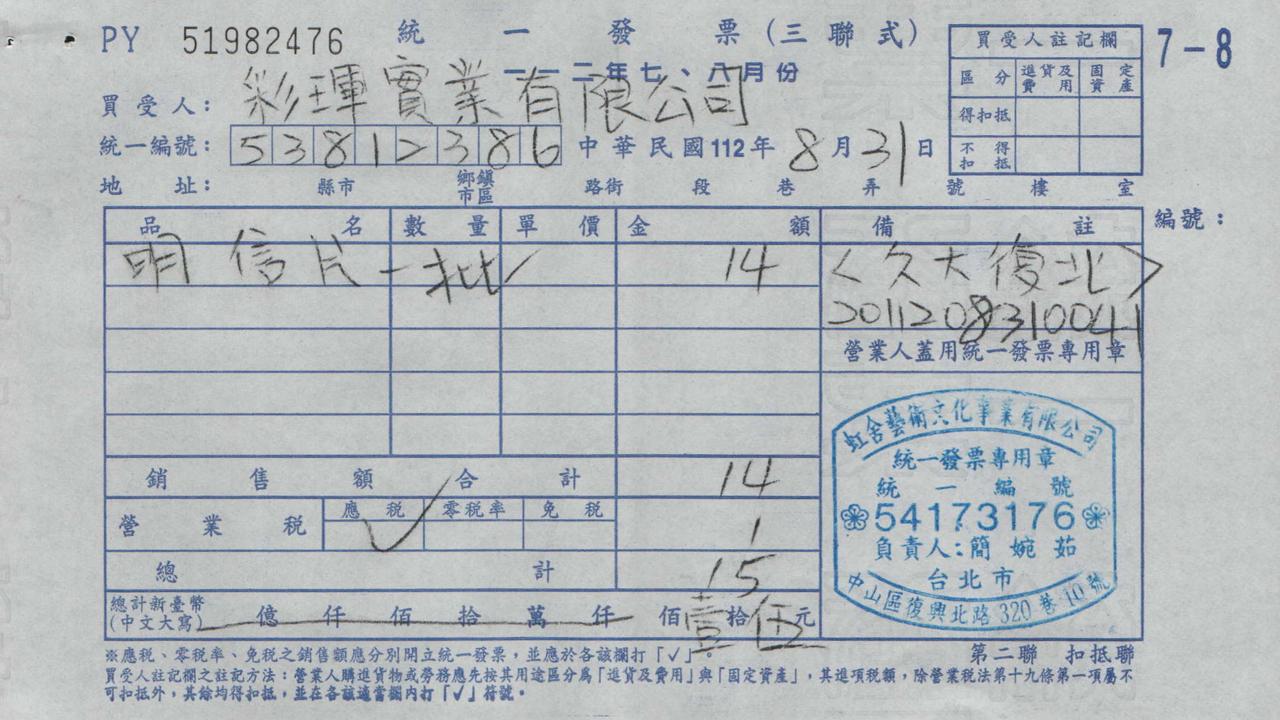 PY 51982476 統一發票(三聯式)
一一二年七、八月份
7-8
買受人註記欄
區分 進貨及費用 固定資產
得扣抵
不得扣抵
買受人: 彩琿實業有限公司
統一編號: 53812386 中華民國112年8月31日
地址: 縣市 鄉鎮市區 路街 段 巷 弄 號 樓 室
品名 數量 單價 金額 備註 編號:
明信片 一批 14 <久大復北>
2011208310041
營業人蓋用統一發票專用章
銷售額合計 14
營業稅 應稅 ✓ 零稅率 免稅 1
總計 15
總計新臺幣(中文大寫) 億 仟 佰 拾 萬 仟 佰 壹拾伍元
虹舍藝術文化事業有限公司
統一發票專用章
統一編號
54173176
負責人:簡婉茹
台北市
中山區復興北路320巷10號
第二聯 扣抵聯
※應稅、零稅率、免稅之銷售額應分別開立統一發票,並應於各該欄打「✓」。
買受人註記欄之註記方法:營業人購進貨物或勞務應先按其用途區分為「進貨及費用」與「固定資產」,其進項稅額,除營業稅法第十九條第一項屬不
可扣抵外,其餘均得扣抵,並在各該適當欄內打「✓」符號。